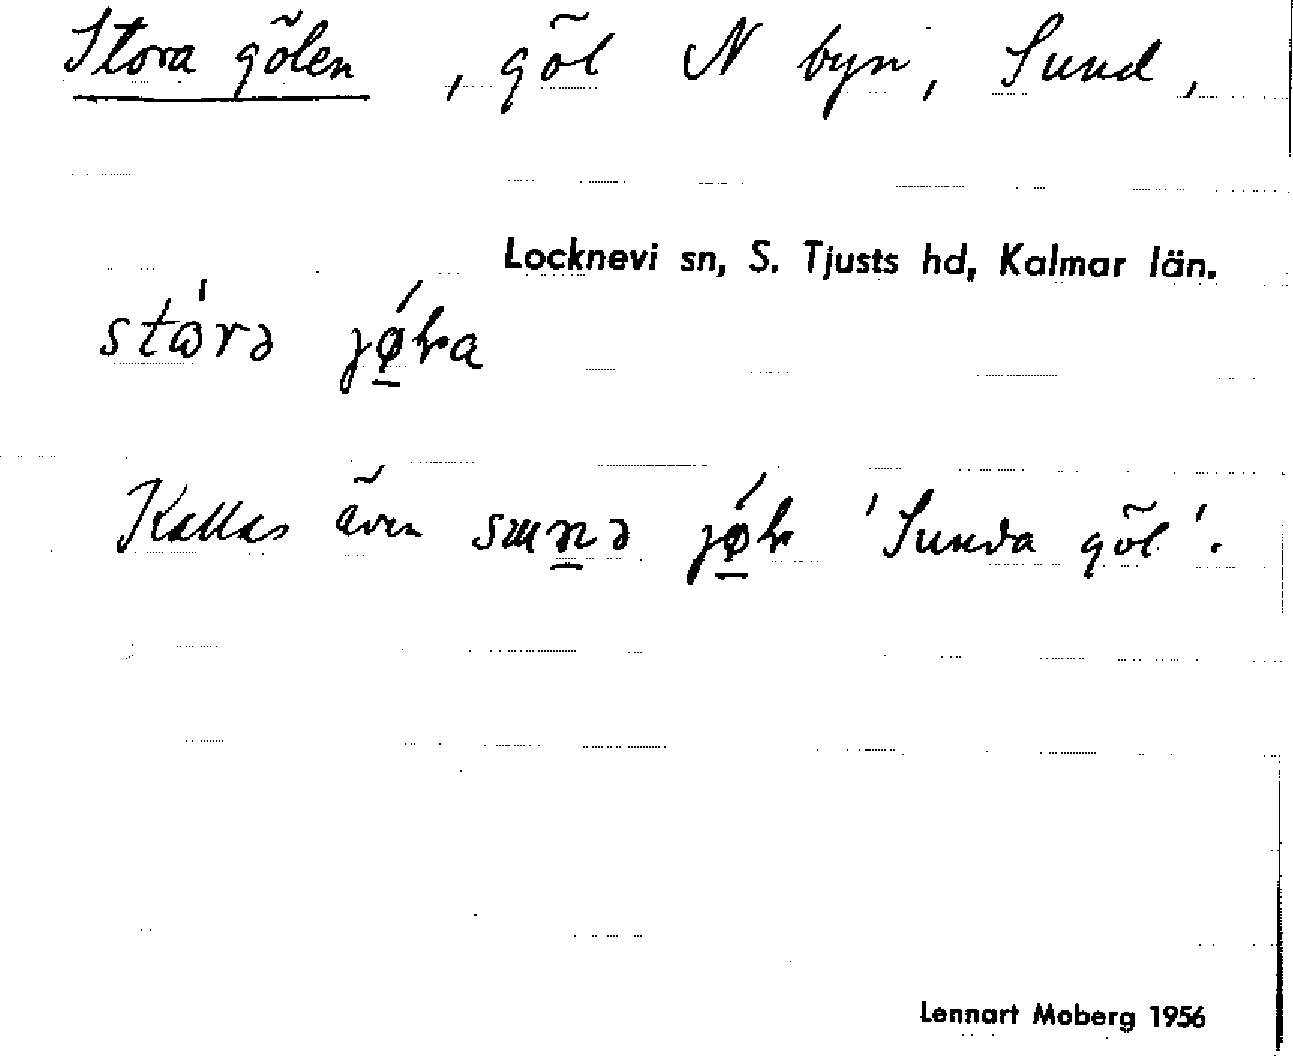 Stora gölen, göl N byn, Sund,
Locknevi sn, S. Tjusts hd, Kalmar län.
Kallas även 'Sunda göl'.
Lennart Moberg 1956